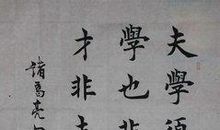 夫學須
學也非
才非志
諸葛亮